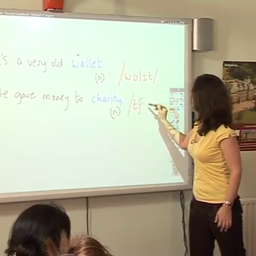 's a very old wallet
(n) /wɒlɪt/
e gave money to charity
(n) /tʃ